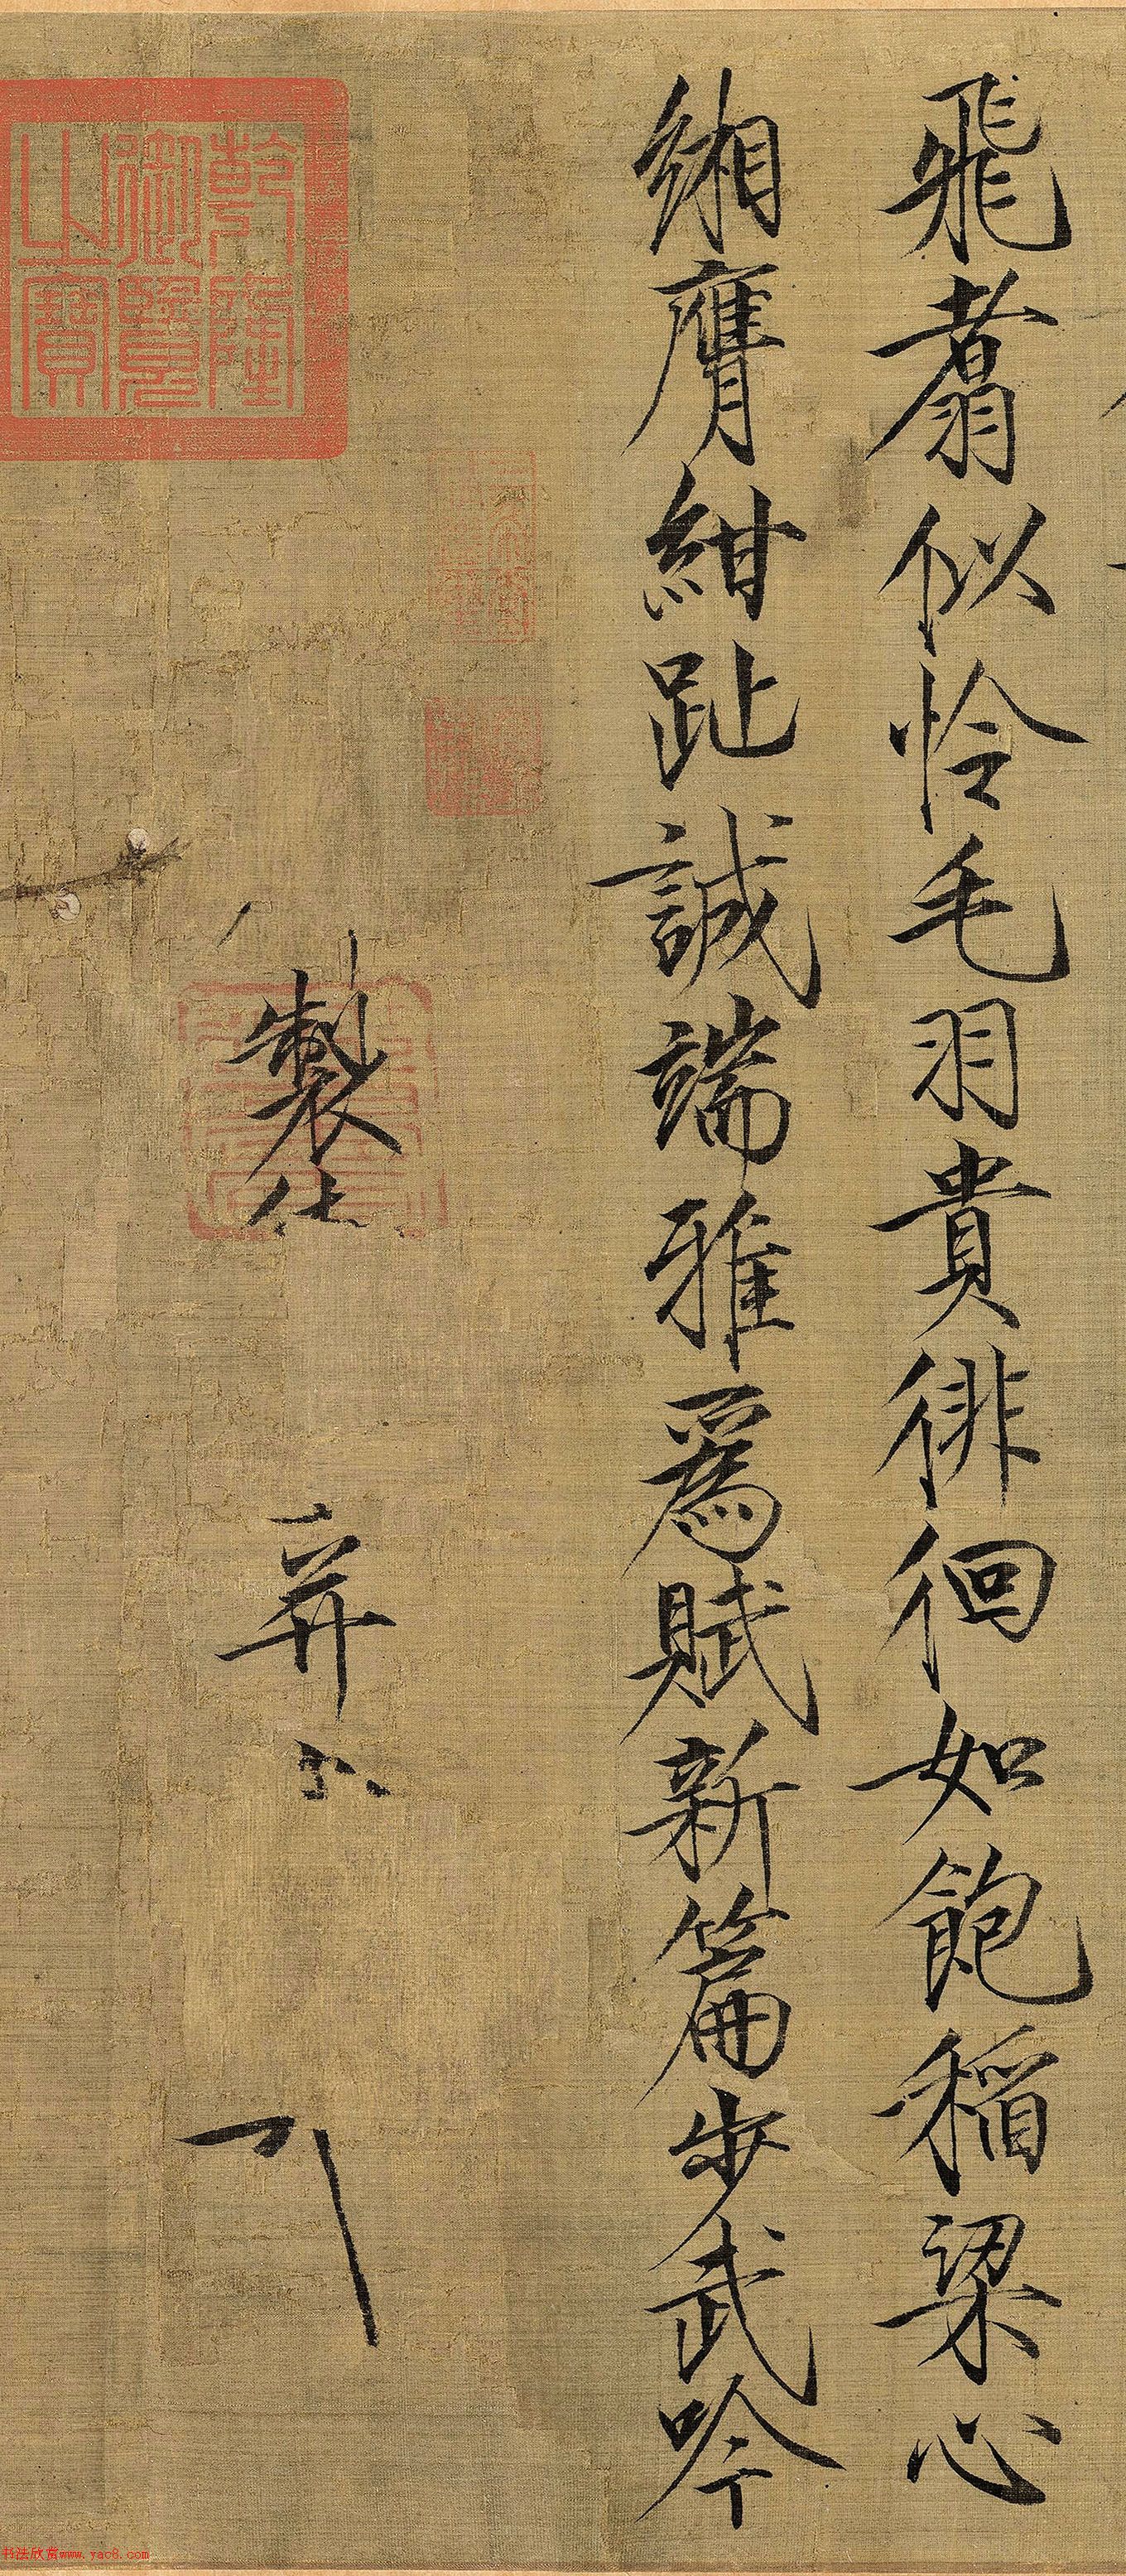 飛翥似怜毛羽貴徘徊如飽稻粱心
緗膺紺趾誠端雅為賦新篇步武吟
製
并
乾隆御覽之寶
书法欣赏www.yac8.com